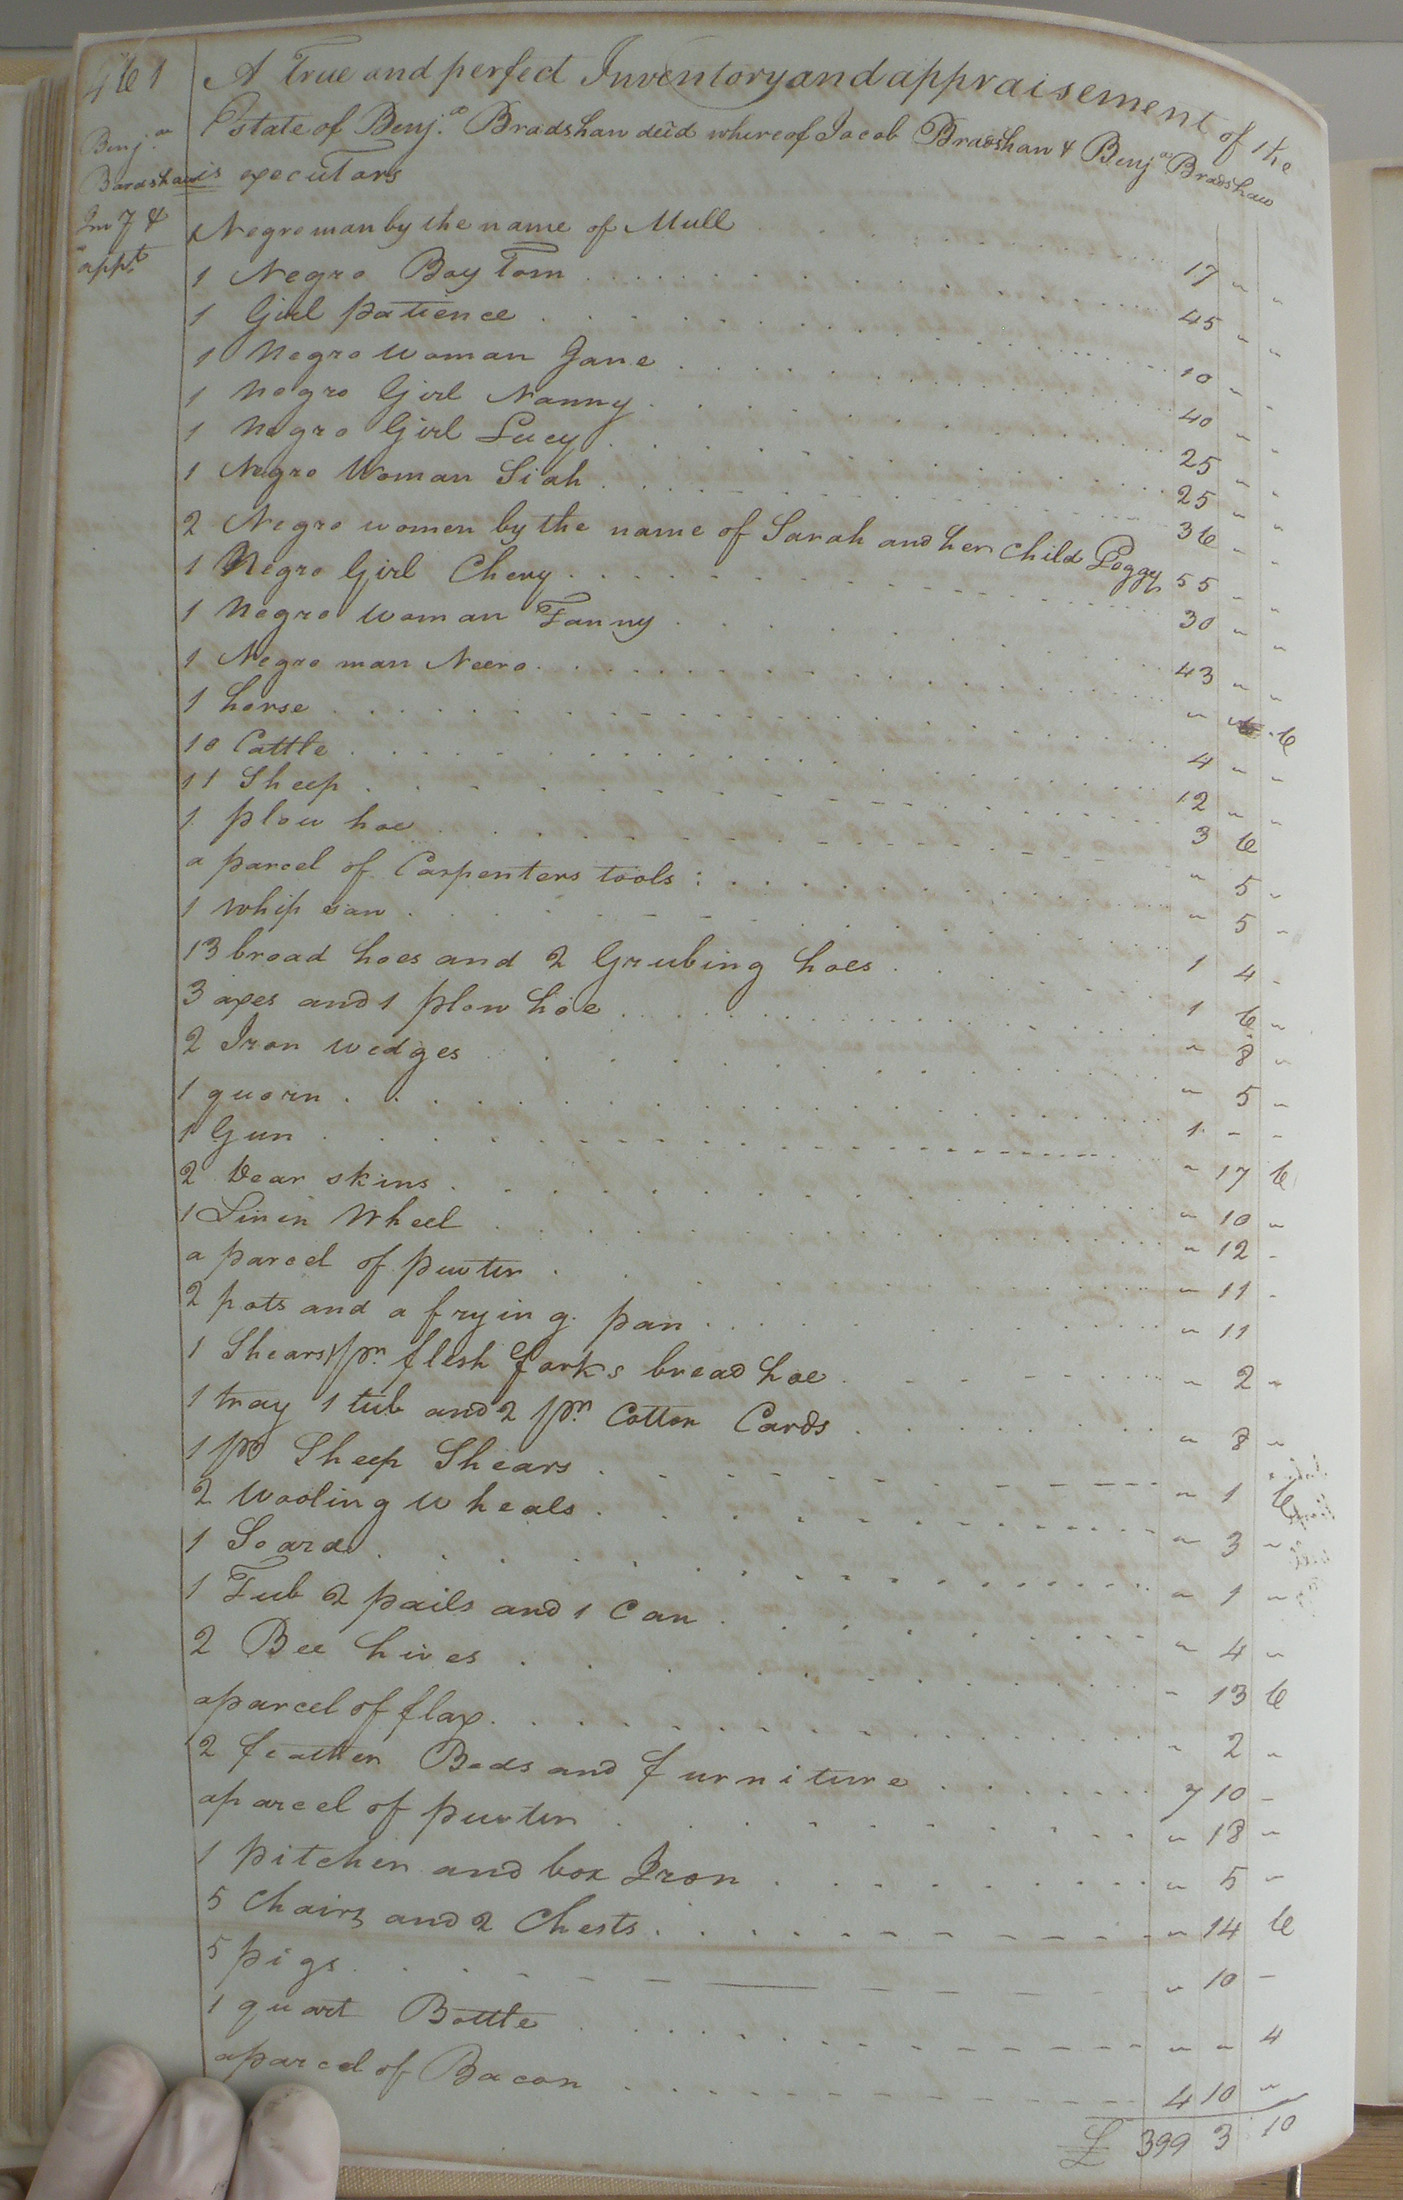 461
A True and perfect Inventory and appraisement of the
Estate of Benj.a Bradshaw decd whereof Jacob Bradshaw & Benja Bradshaw
is executors
Benj.an
Bardshaw
Inv &
appt
1 Negro man by the name of Mull . . . . 17 " "
1 Negro Boy Tom . . . . 45 " "
1 Girl patience . . . . 10 " "
1 Negro woman Jane . . . . 40 " "
1 Negro Girl Nanny . . . . 25 " "
1 Negro Girl Lucy . . . . 25 " "
1 Negro Woman Siah . . . . 36 " "
2 Negro women by the name of Sarah and her child Peggy 55 " "
1 Negro Girl Cheny . . . . 30 " "
1 Negro woman Fanny . . . . 43 " "
1 Negro man Neero . . . . " " 6
1 horse . . . . 4 " "
10 Cattle . . . . 12 " "
11 Sheep . . . . 3 6
1 plow hoe . . . . " 5 "
a parcel of Carpenters tools : . . . . " 5 "
1 whip saw . . . . 1 4 "
13 broad hoes and 2 Grubing hoes . . . . 1 6 "
3 axes and 1 plow hoe . . . . " 8 "
2 Iron wedges . . . . " 5 "
1 quorn . . . . 1 - -
1 Gun . . . . " 17 6
2 Dear skins . . . . " 10 "
1 Linen Wheel . . . . " 12 -
a parcel of puter . . . . " 11 -
2 pots and a frying pan . . . . " 11
1 Shears 1 pr flesh forks bread hoe . . . . " 2 "
1 tray 1 tub and 2 pr Cotton Cards . . . . " 8 "
1 pr Sheep Shears . . . . " 1 6
2 wooling wheals . . . . " 3 "
1 Soard . . . . " 1 "
1 Tub 2 pails and 1 Can . . . . " 4 "
2 Bee hives . . . . - 13 6
a parcel of flax . . . . " 2 "
2 feather Beds and furniture . . . . 7 10 -
a parcel of puter . . . . " 18 "
1 pitcher and box Iron . . . . " 5 -
5 Chairs and 2 Chests . . . . " 14 6
5 pigs . . . . " 10 -
1 quart Bottle . . . . " " 4
a parcel of Bacon . . . . 4 10 "
£ 399 3 10